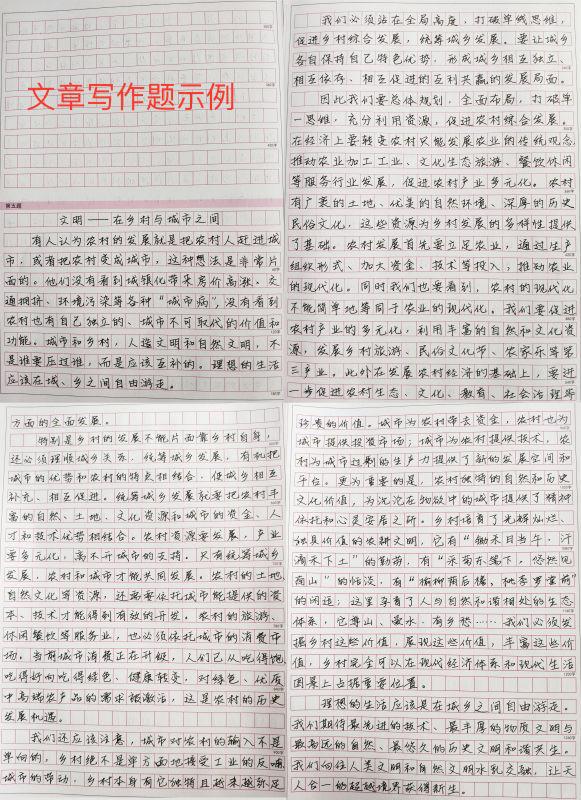 文章写作题示例
第五题
文明——在乡村与城市之间
有人认为农村的发展就是把农村人赶进城
市，或者把农村变成城市，这种想法是非常片
面的。他们没有看到城镇化带来房价高涨、交
通拥挤、环境污染等各种“城市病”，没有看到
农村也有自己独立的、城市不可取代的价值和
功能。城市和乡村，人造文明和自然文明，不
是谁要压过谁，而是应该互补的。理想的生活
应该在城、乡之间自由游走。
我们必须站在全局高度，打破单线思维，
促进乡村综合发展，统筹城乡发展。要让城乡
各自保持自己特色优势，形成城乡相互独立、
相互依存、相互促进的互利共赢的发展局面。
因此我们要总体规划，全面布局，打破单
一思维，充分利用资源，促进农村综合发展。
在经济上要转变农村只能发展农业的传统观念，
推动农业加工工业、文化生态旅游、餐饮休闲
等服务行业发展，促进农村产业多元化。农村
有广袤的土地、优美的自然环境、深厚的历史
民俗文化，这些资源为乡村发展的多样性提供
了基础。农村发展首先要立足农业，通过生产
组织形式、加大资金、技术等投入，推动农业
的现代化。同时我们也要看到，农村的现代化
不能简单地等同于农业的现代化。我们要促进
农村产业的多元化，利用丰富的自然和文化资
源，发展乡村旅游、民俗文化节、农家乐等第
三产业。此外在发展农村经济的基础上，要进
一步促进农村生态、文化、教育、社会治理等
方面的全面发展。
特别是乡村的发展不能片面靠乡村自身，
还必须理顺城乡关系，统筹城乡发展，有机把
城市的优势和农村的特点相结合，使城乡相互
补充、相互促进。统筹城乡发展就要把农村丰
富的自然、土地、文化资源和城市的资金、人
才和技术优势相结合。农村资源要发展，产业
要多元化，离不开城市的支持。只有统筹城乡
发展，农村和城市才能共同发展。农村的土地、
自然文化等资源，还需要依托城市能提供的资
本、技术才能得到有效的开发。农村的旅游、
休闲餐饮等服务业，也必须依托城市的消费市
场。当前城市消费正在升级，人们已从吃得饱、
吃得好向吃得绿色、健康转变，对绿色、优质
中高端农产品的需求被激活，这是农村的历史
发展机遇。
我们还应该注意，城市对农村的输入不是
单向的，乡村绝不是单方面地接受工业的反哺、
城市的带动，乡村本身有它独特且越来越弥足
珍贵的价值。城市为农村带去资金，农村也为
城市提供投资市场；城市为农村提供技术，农
村为城市过剩的生产力提供了新的发展空间和
平台。更为重要的是，农村独特的自然和历史
文化价值，为沉沦在物欲中的城市提供了精神
依托和心灵安居之所。乡村培育了光辉灿烂、
独具价值的农耕文明，它有“锄禾日当午，汗
滴禾下土”的勤苦，有“采菊东篱下，悠然见
南山”的恬淡，有“榆柳荫后檐，桃李罗堂前”
的闲适；这里孕育了人与自然和谐相处的生态
体系，它靠山、爱水、有乡愁……我们必须发
掘乡村这些价值，展现这些价值，丰富这些价
值，乡村完全可以在现代经济体系和现代生活
图景上占据重要位置。
理想的生活应该是在城乡之间自由游走。
我们期待最先进的技术、最丰厚的物质文明与
最高远的自然、最悠久的历史文明和谐共生。
我们向往人类文明和自然文明水乳交融，让天
人合一的超越境界获得新生。